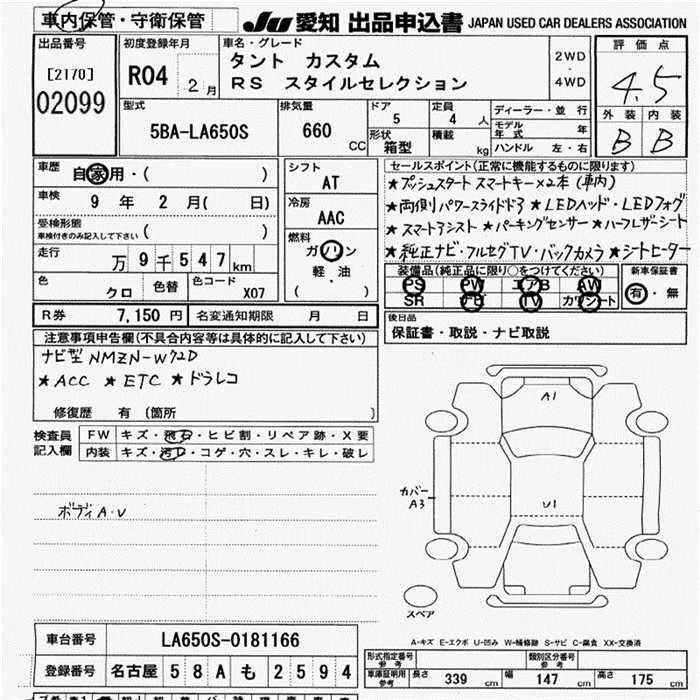 車内保管・守衛保管
JU 愛知 出品申込書 JAPAN USED CAR DEALERS ASSOCIATION
出品番号
[2170]
02099
初度登録年月
R04 2 月
車名・グレード
タント カスタム
RS スタイルセレクション
2WD
・
4WD
評価点
4.5
外装 内装
B B
型式
5BA-LA650S
排気量
660 CC
ドア
5
定員
4 人
形状
箱型
積載
kg
ディーラー・並行
モデル年式 年
ハンドル 左・右
車歴
自家用・( )
車検
9 年 2 月( 日)
受検形態
車検付きのみ記入して下さい ( )
走行
万 9 千 5 4 7 km
色
クロ
色替
色コード
X07
シフト
AT
冷房
AAC
燃料
ガソリン
軽・油
( )
セールスポイント(正常に機能するものに限ります)
★プッシュスタート スマートキー×2本(車内)
★両側パワースライドドア ★LEDヘッド・LEDフォグ
★スマートアシスト ★パーキングセンサー ★ハーフレザーシート
★純正ナビ・フルセグTV・バックカメラ ★シートヒーター
装備品(純正品に限り○をつけてください)
PS PW エアB AW
SR ナビ TV カワシート
新車保証書
有・無
R券 7,150 円
名変通知期限 月 日
後日品
保証書・取説・ナビ取説
注意事項申告欄(不具合内容等は具体的に記入して下さい)
ナビ型 NMZN-W72D
★ACC ★ETC ★ドラレコ
修復歴 有 (箇所 )
検査員
記入欄
FW キズ・飛石・ヒビ割・リペア跡・X要
内装 キズ・汚れ・コゲ・穴・スレ・キレ・破レ
ボディA・U
A1
カバー
A3
U1
スペア
A-キズ E-エクボ U-凹み W-補修跡 S-サビ C-腐食 XX-交換済
車台番号 LA650S-0181166
登録番号 名古屋 5 8 A も 2 5 9 4
形式指定番号
参考
類別区分番号
参考
車庫証明用
参考
長さ 339 cm 幅 147 cm 高さ 175 cm